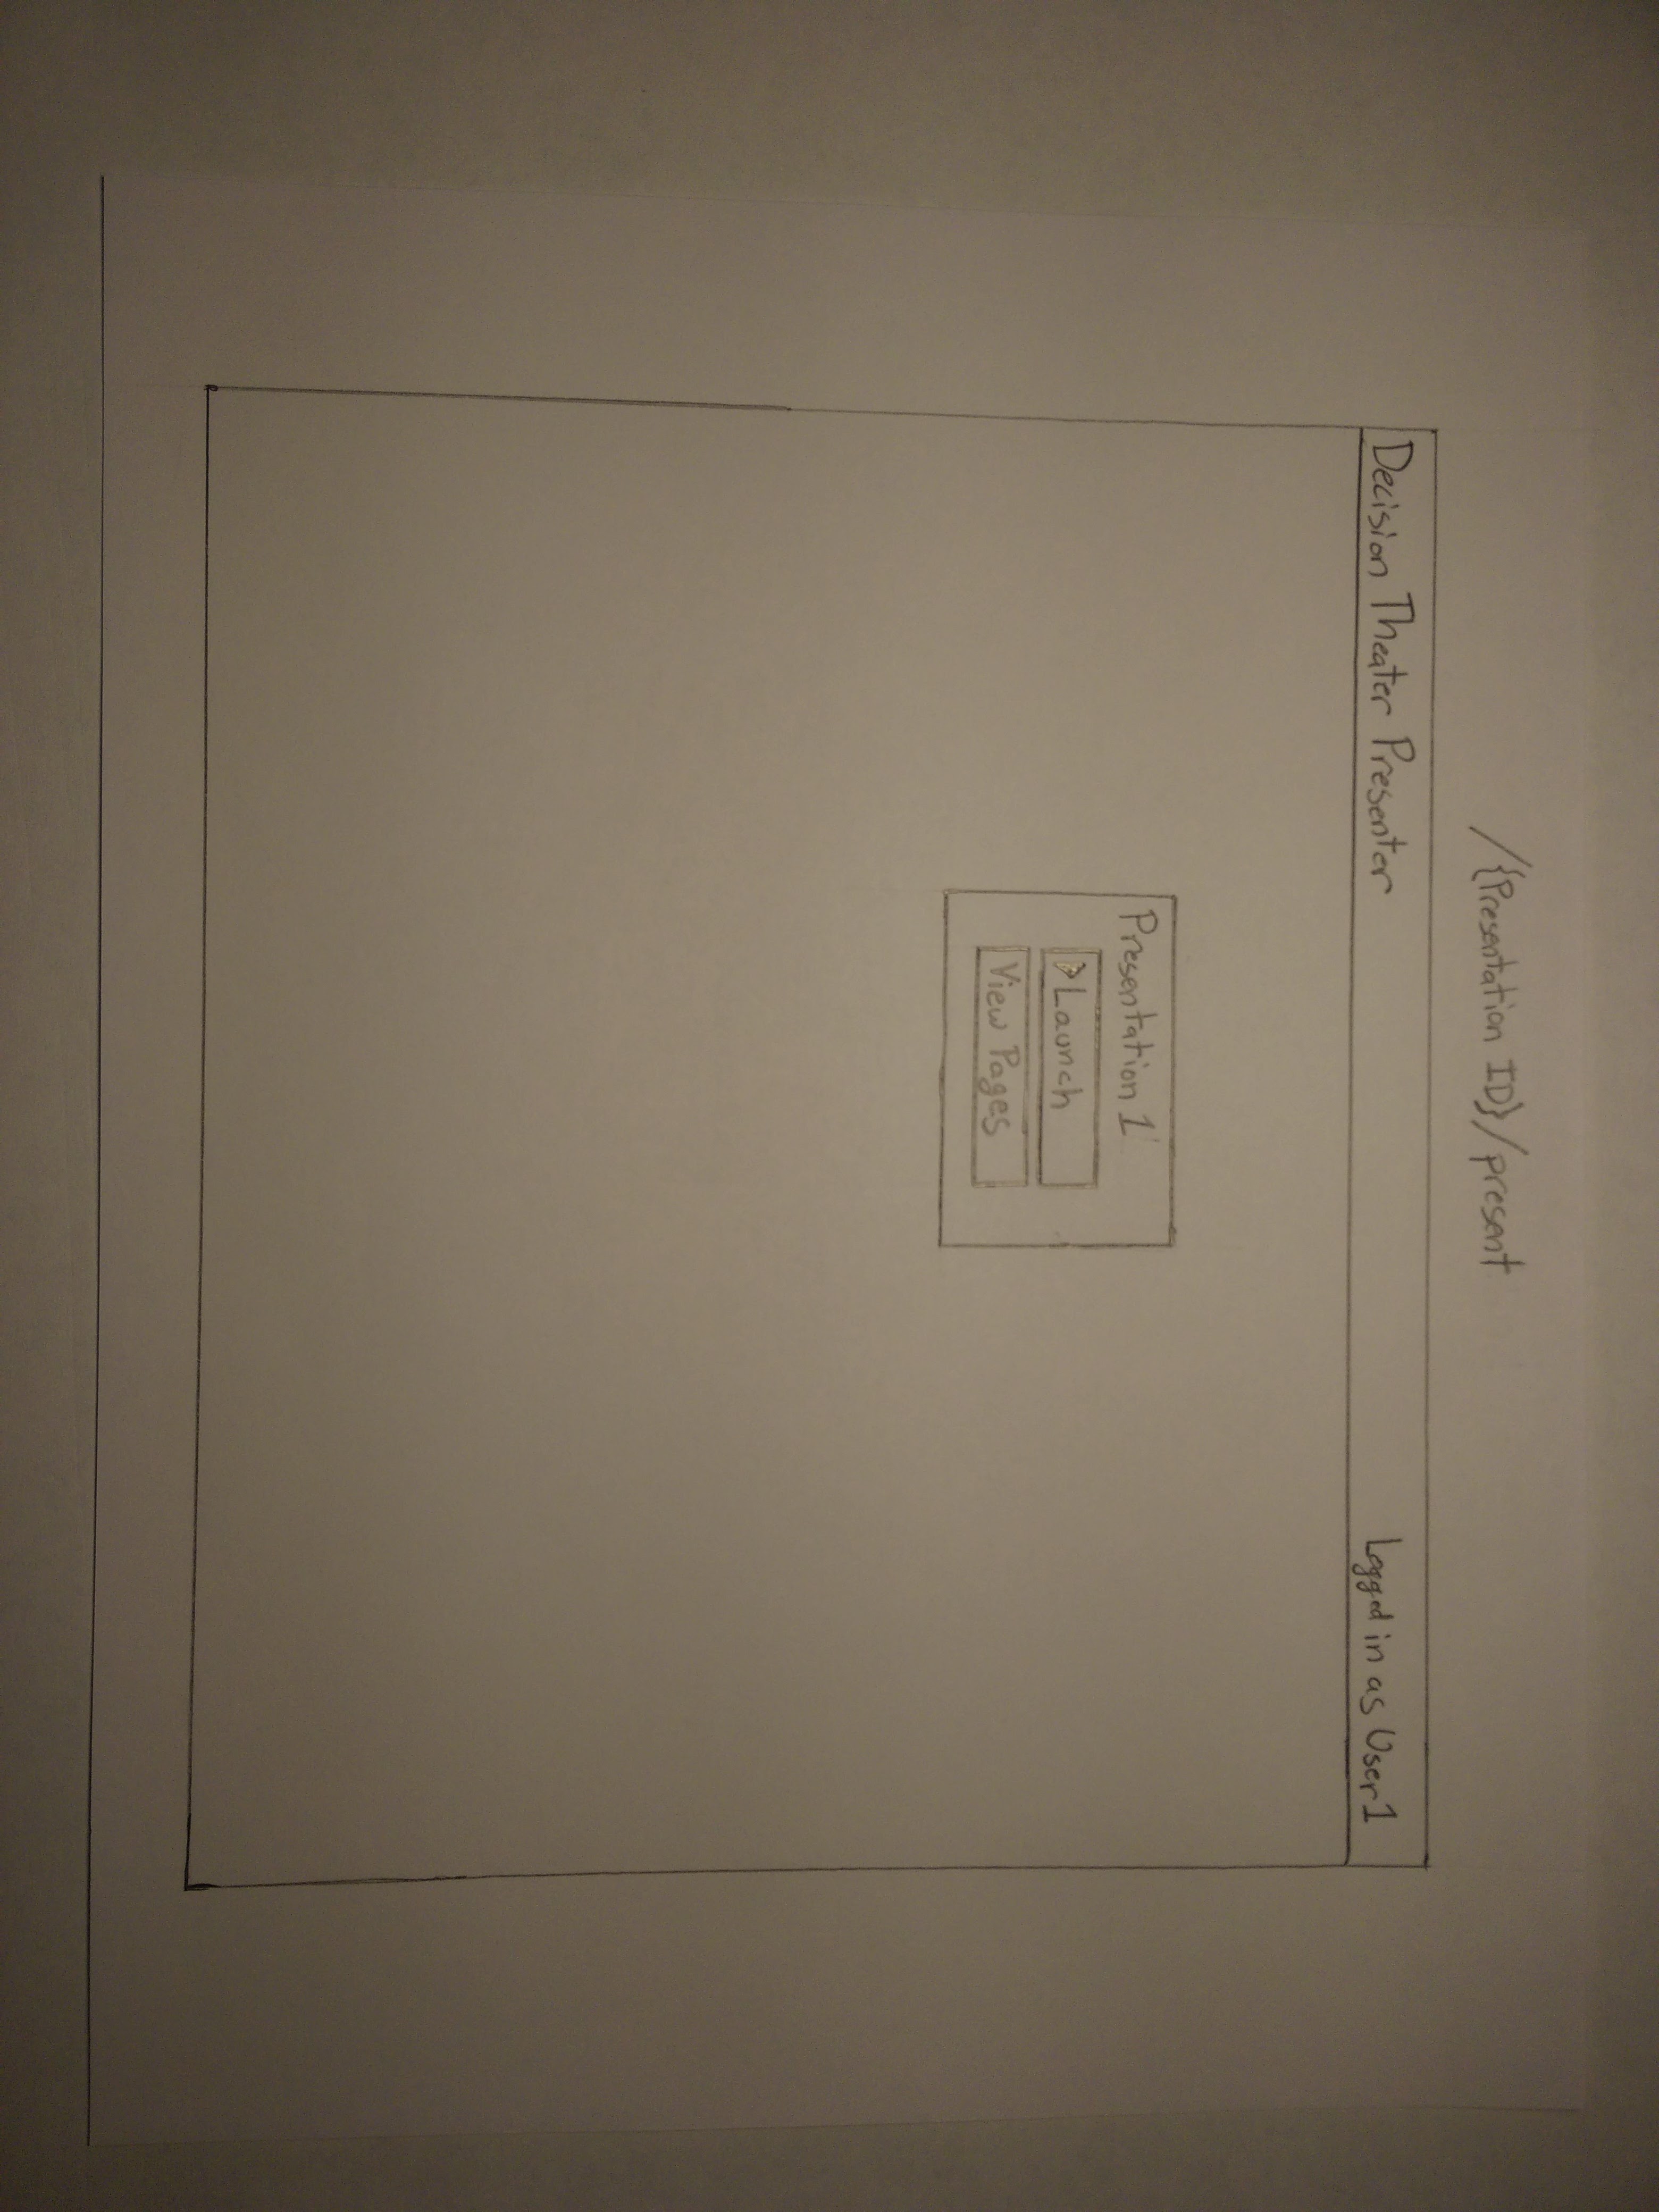 /{Presentation ID}/present
Decision Theater Presenter
Logged in as User1
Presentation 1
Launch
View Pages